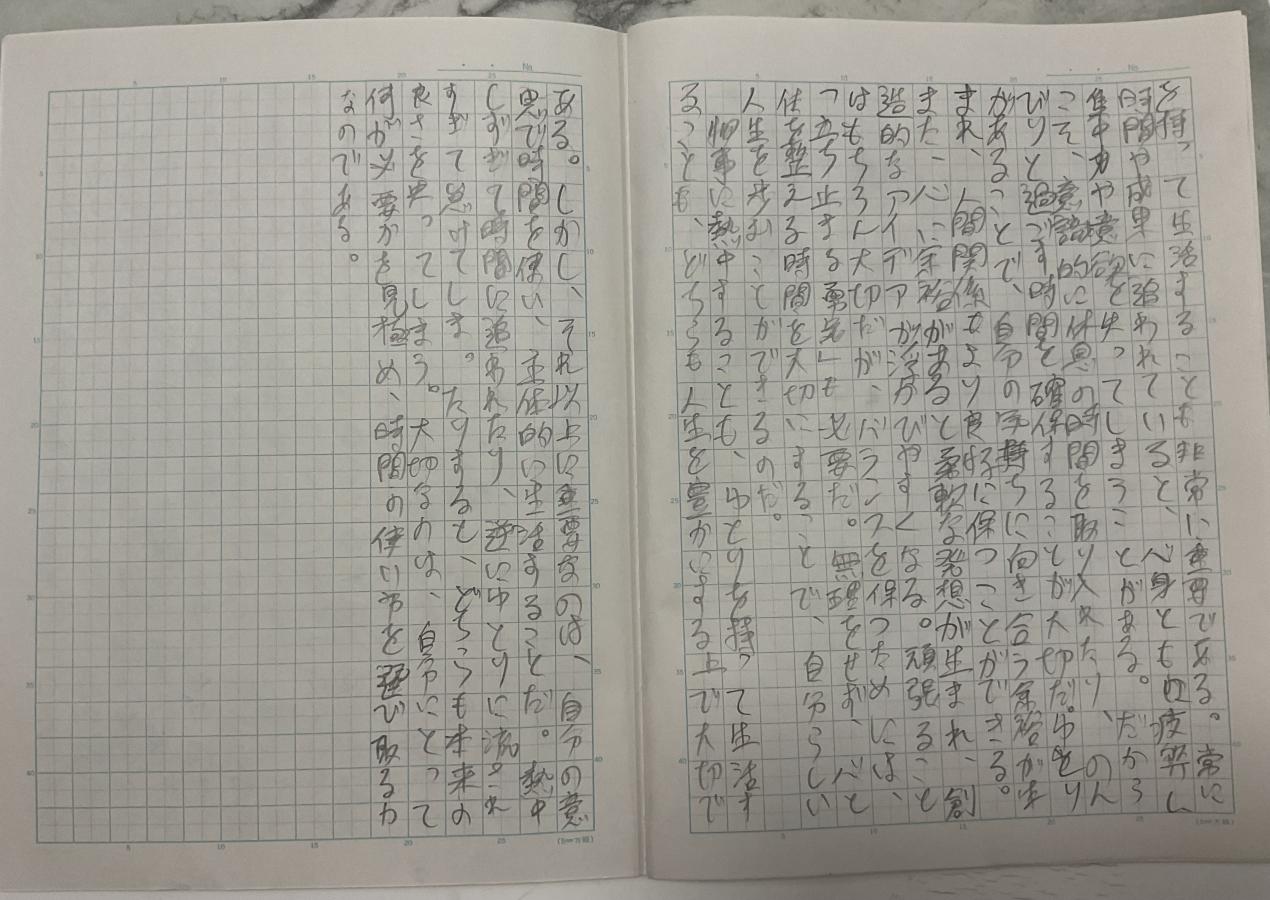 を持って生活することも非常に重要である。常に
時間や成果に追われていると、心身ともに疲弊し
集中力や意欲を失ってしまうことがある。だから
こそ、意識的に休息の時間を取り入れたり、のん
びりと過ごす時間を確保することが大切だ。ゆとり
があることで、自分の気持ちに向き合う余裕が生
まれ、人間関係もより良好に保つことができる。
また、心に余裕があると柔軟な発想が生まれ、創
造的なアイデアが浮かびやすくなる。頑張ること
はもちろん大切だが、バランスを保つためには、
「立ち止まる勇気」も必要だ。無理をせず、心と
体を整える時間を大切にすることで、自分らしい
人生を歩むことができるのだ。
物事に熱中することも、ゆとりを持って生活す
ることも、どちらも人生を豊かにする上で大切で
ある。しかし、それ以上に重要なのは、自分の意
思で時間を使い、主体的に生活することだ。熱中
しすぎて時間に追われたり、逆にゆとりに流され
すぎて怠けてしまったりすると、どちらも本来の
良さを失ってしまう。大切なのは、自分にとって
何が必要かを見極め、時間の使い方を選び取る力
なのである。